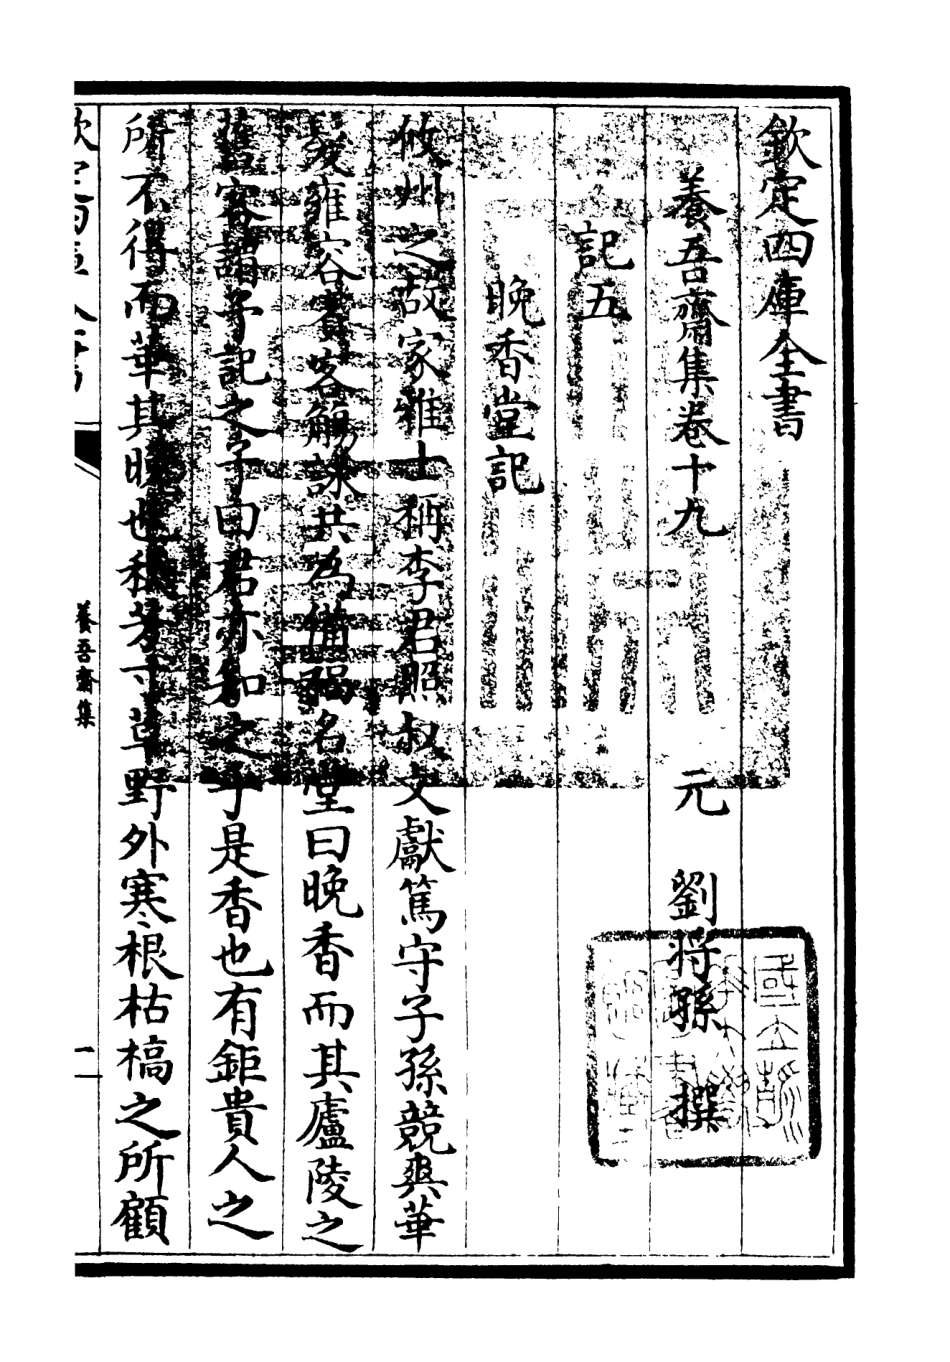 欽定四庫全書
養吾齋集卷十九
元 劉將孫 撰
記五
晚香堂記
攸州之故家雅士稱李君照叔文獻篤守子孫競爽華
髮雍容賓客觴詠共為備福名堂曰晚香而其廬陵之
舊客謂予記之予曰君亦知之乎是香也有鉅貴人之
所不得而華其晚也穉芳寸草野外寒根枯槁之所顧
養吾齋集
一